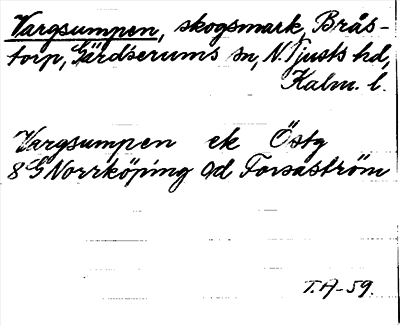 Vargsumpen, skogsmark, Brås-
torp, Gärdserums sn, N. Tjusts hd,
Kalm. l.
Vargsumpen ek Östg
8G Norrköping 9d Forsaström
T.A-59.